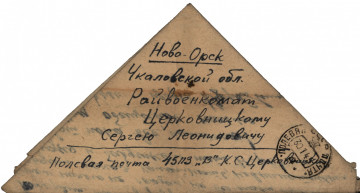 Ново-Орск
Чкаловской обл.
Райвоенкомат
Церковницкому
Сергею Леонидовичу
Полевая почта 45113 "В" К.С. Церковницкий